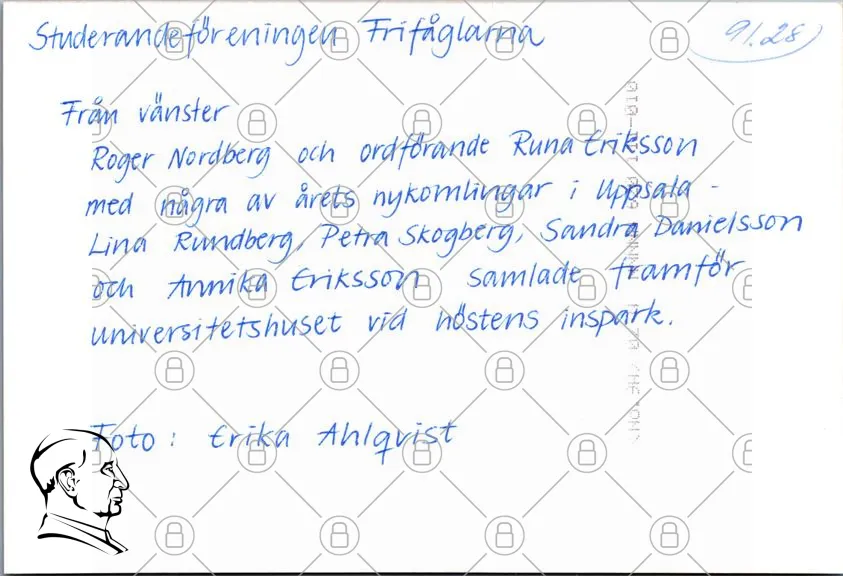 Studerandeföreningen Frifåglarna
91.28
Från vänster
Roger Nordberg och ordförande Runa Eriksson
med några av årets nykomlingar i Uppsala -
Lina Rundberg, Petra Skogberg, Sandra Danielsson
och Annika Eriksson samlade framför
universitetshuset vid höstens inspark.
Foto: Erika Ahlqvist